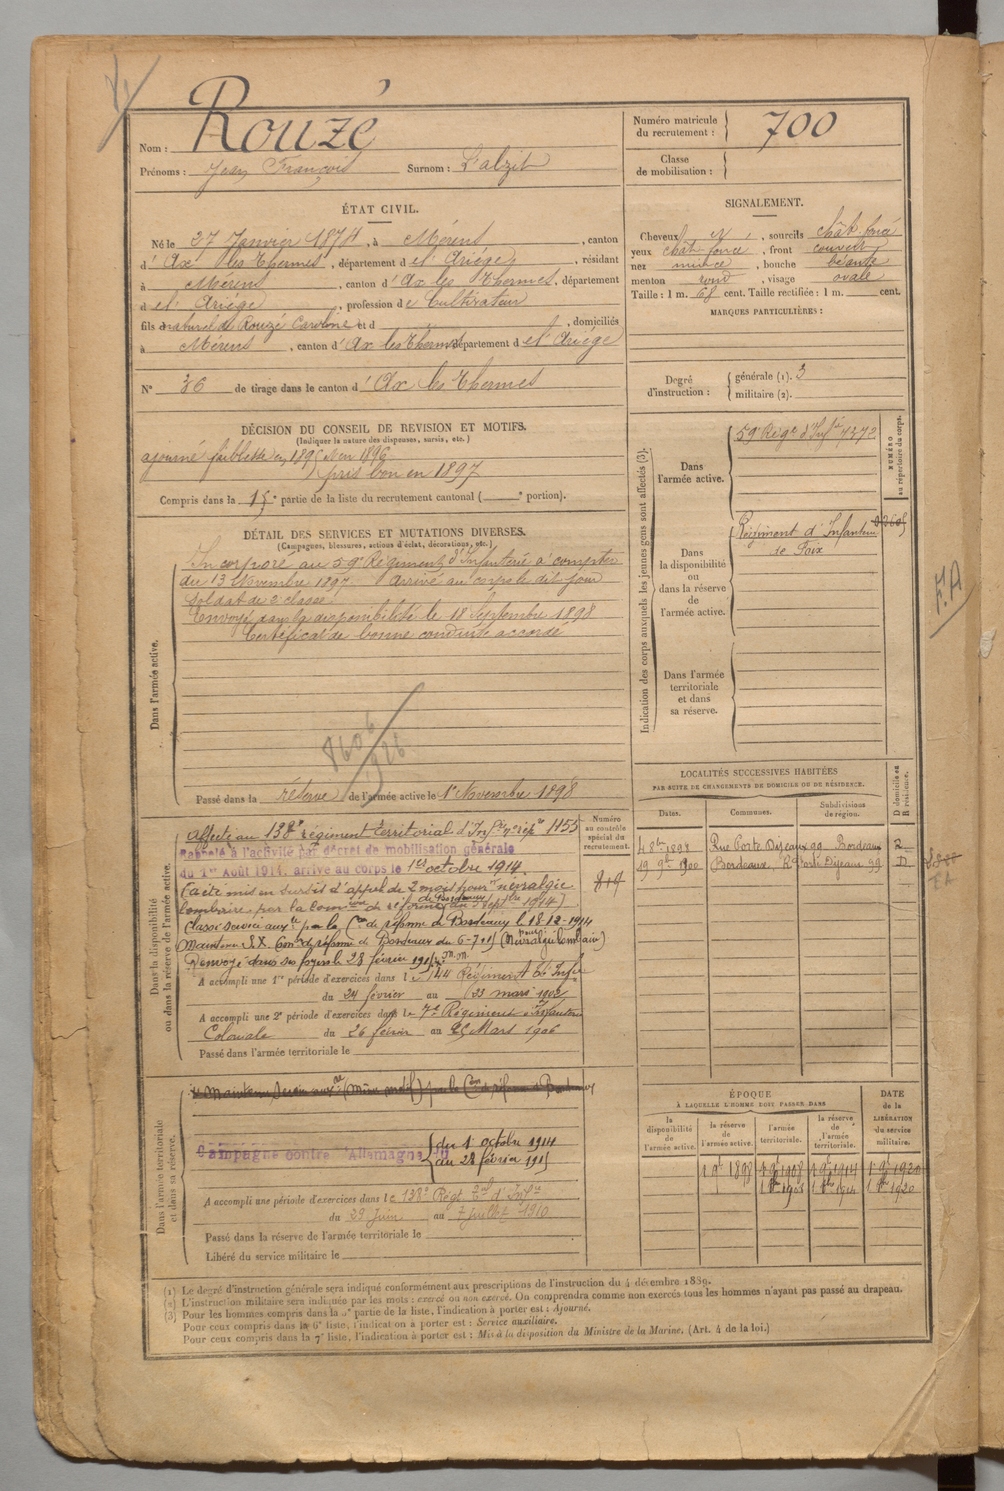 Nom : Rouzé
Prénoms : Jean François Surnom : L'alzit
Numéro matricule du recrutement : 700
Classe de mobilisation :
ÉTAT CIVIL.
Né le 27 Janvier 1874, à Mérens, canton
d'Ax les Thermes, département de l'Ariége, résidant
à Mérens, canton d'Ax les Thermes, département
de l'Ariége, profession de Cultivateur
fils naturel de Rouzé Caroline et d , domiciliés
à Mérens, canton d'Ax les Thermes département de l'Ariége
N° 36 de tirage dans le canton d'Ax les Thermes
SIGNALEMENT.
Cheveux , sourcils chât. foncé
yeux chât. foncé, front couvert
nez mince, bouche béante
menton rond, visage ovale
Taille : 1 m. 68 cent. Taille rectifiée : 1 m. cent.
MARQUES PARTICULIÈRES :
Degré d'instruction : générale (1). 3
militaire (2).
DÉCISION DU CONSEIL DE REVISION ET MOTIFS.
(Indiquer la nature des dispenses, sursis, etc.)
ajourné faiblesse en 1895 et en 1896
pris bon en 1897
Compris dans la 1re partie de la liste du recrutement cantonal ( e portion).
DÉTAIL DES SERVICES ET MUTATIONS DIVERSES.
(Campagnes, blessures, actions d'éclat, décorations, etc.)
Dans l'armée active.
Incorporé au 59e Régiment d'Infanterie à compter
du 13 Novembre 1897. Arrivé au corps le dit jour
soldat de 2 classe.
Envoyé dans la disponibilité le 18 Septembre 1898
Certificat de bonne conduite accordé
Passé dans la réserve de l'armée active le 1er Novembre 1898
Indication des corps auxquels les jeunes gens sont affectés (3).
NUMÉRO au répertoire du corps.
Dans l'armée active.
59e Régt d'Infie 7372
Dans la disponibilité ou dans la réserve de l'armée active.
Régiment d'Infanterie
de Foix
Dans l'armée territoriale et dans sa réserve.
F.A
LOCALITÉS SUCCESSIVES HABITÉES
PAR SUITE DE CHANGEMENTS DE DOMICILE OU DE RÉSIDENCE.
Dates. Communes. Subdivisions de région. D domicile ou R résidence.
4 8bre 1898 Rue Porte Dijeaux 99 Bordeaux R
19 9bre 1900 Bordeaux, R. Porte Dijeaux 99 D
Dans la disponibilité ou dans la réserve de l'armée active.
Numéro au contrôle spécial du recrutement.
Affecté au 138e régiment territorial d'Infie n° rép. 1155
Rappelé à l'activité par décret de mobilisation générale
du 1er Août 1914. arrivé au corps le 1er octobre 1914.
(a été mis en sursit d'appel de 2 mois pour névralgie
lombaire par la Comion de réforme de Bordeaux du 7bre 1914)
Classé service auxre par la Con de réforme de Bordeaux le 18-12-1914
Maintenu S.X. Comon de réforme de Bordeaux du 6-7-15 (pour Névralgie lombaire)
Renvoyé dans ses foyers le 28 février 1915
A accompli une 1re période d'exercices dans le 144 Régiment d'Infie
du 24 février au 23 mars 1902
A accompli une 2e période d'exercices dans le 7e Régiment d'Infanterie
Coloniale du 26 février au 25 Mars 1906
Passé dans l'armée territoriale le
Dans l'armée territoriale et dans sa réserve.
Campagne contre l'Allemagne du 1 octobre 1914
au 28 février 1915
A accompli une période d'exercices dans le 138e Régt Tal d'Infie
du 29 Juin au 7 juillet 1910
Passé dans la réserve de l'armée territoriale le
Libéré du service militaire le
ÉPOQUE
À LAQUELLE L'HOMME DOIT PASSER DANS
la disponibilité de l'armée active. la réserve de l'armée active. l'armée territoriale. la réserve de l'armée territoriale.
DATE de la LIBÉRATION du service militaire.
1 9bre 1898 1 9bre 1908 1 9bre 1914 1 9bre 1920
(1) Le degré d'instruction générale sera indiqué conformément aux prescriptions de l'instruction du 4 décembre 1889.
(2) L'instruction militaire sera indiquée par les mots : exercé ou non exercé. On comprendra comme non exercés tous les hommes n'ayant pas passé au drapeau.
(3) Pour les hommes compris dans la 5e partie de la liste, l'indication à porter est : Ajourné.
Pour ceux compris dans la 6e liste, l'indication à porter est : Service auxiliaire.
Pour ceux compris dans la 7e liste, l'indication à porter est : Mis à la disposition du Ministre de la Marine. (Art. 4 de la loi.)